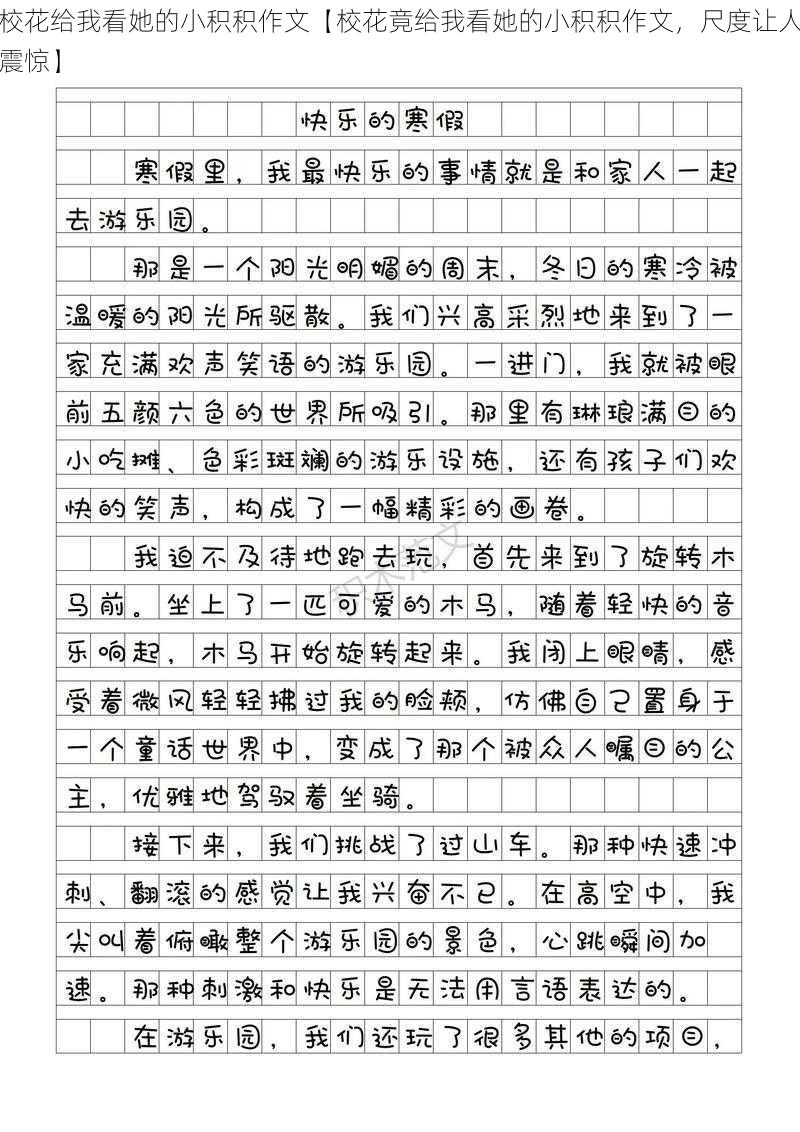 校花给我看她的小积积作文【校花竟给我看她的小积积作文，尺度让人
震惊】
快乐的寒假
寒假里，我最快乐的事情就是和家人一起
去游乐园。
那是一个阳光明媚的周末，冬日的寒冷被
温暖的阳光所驱散。我们兴高采烈地来到了一
家充满欢声笑语的游乐园。一进门，我就被眼
前五颜六色的世界所吸引。那里有琳琅满目的
小吃摊、色彩斑斓的游乐设施，还有孩子们欢
快的笑声，构成了一幅精彩的画卷。
我迫不及待地跑去玩，首先来到了旋转木
马前。坐上了一匹可爱的木马，随着轻快的音
乐响起，木马开始旋转起来。我闭上眼睛，感
受着微风轻轻拂过我的脸颊，仿佛自己置身于
一个童话世界中，变成了那个被众人瞩目的公
主，优雅地驾驭着坐骑。
接下来，我们挑战了过山车。那种快速冲
刺、翻滚的感觉让我兴奋不已。在高空中，我
尖叫着俯瞰整个游乐园的景色，心跳瞬间加
速。那种刺激和快乐是无法用言语表达的。
在游乐园，我们还玩了很多其他的项目，
积木范文